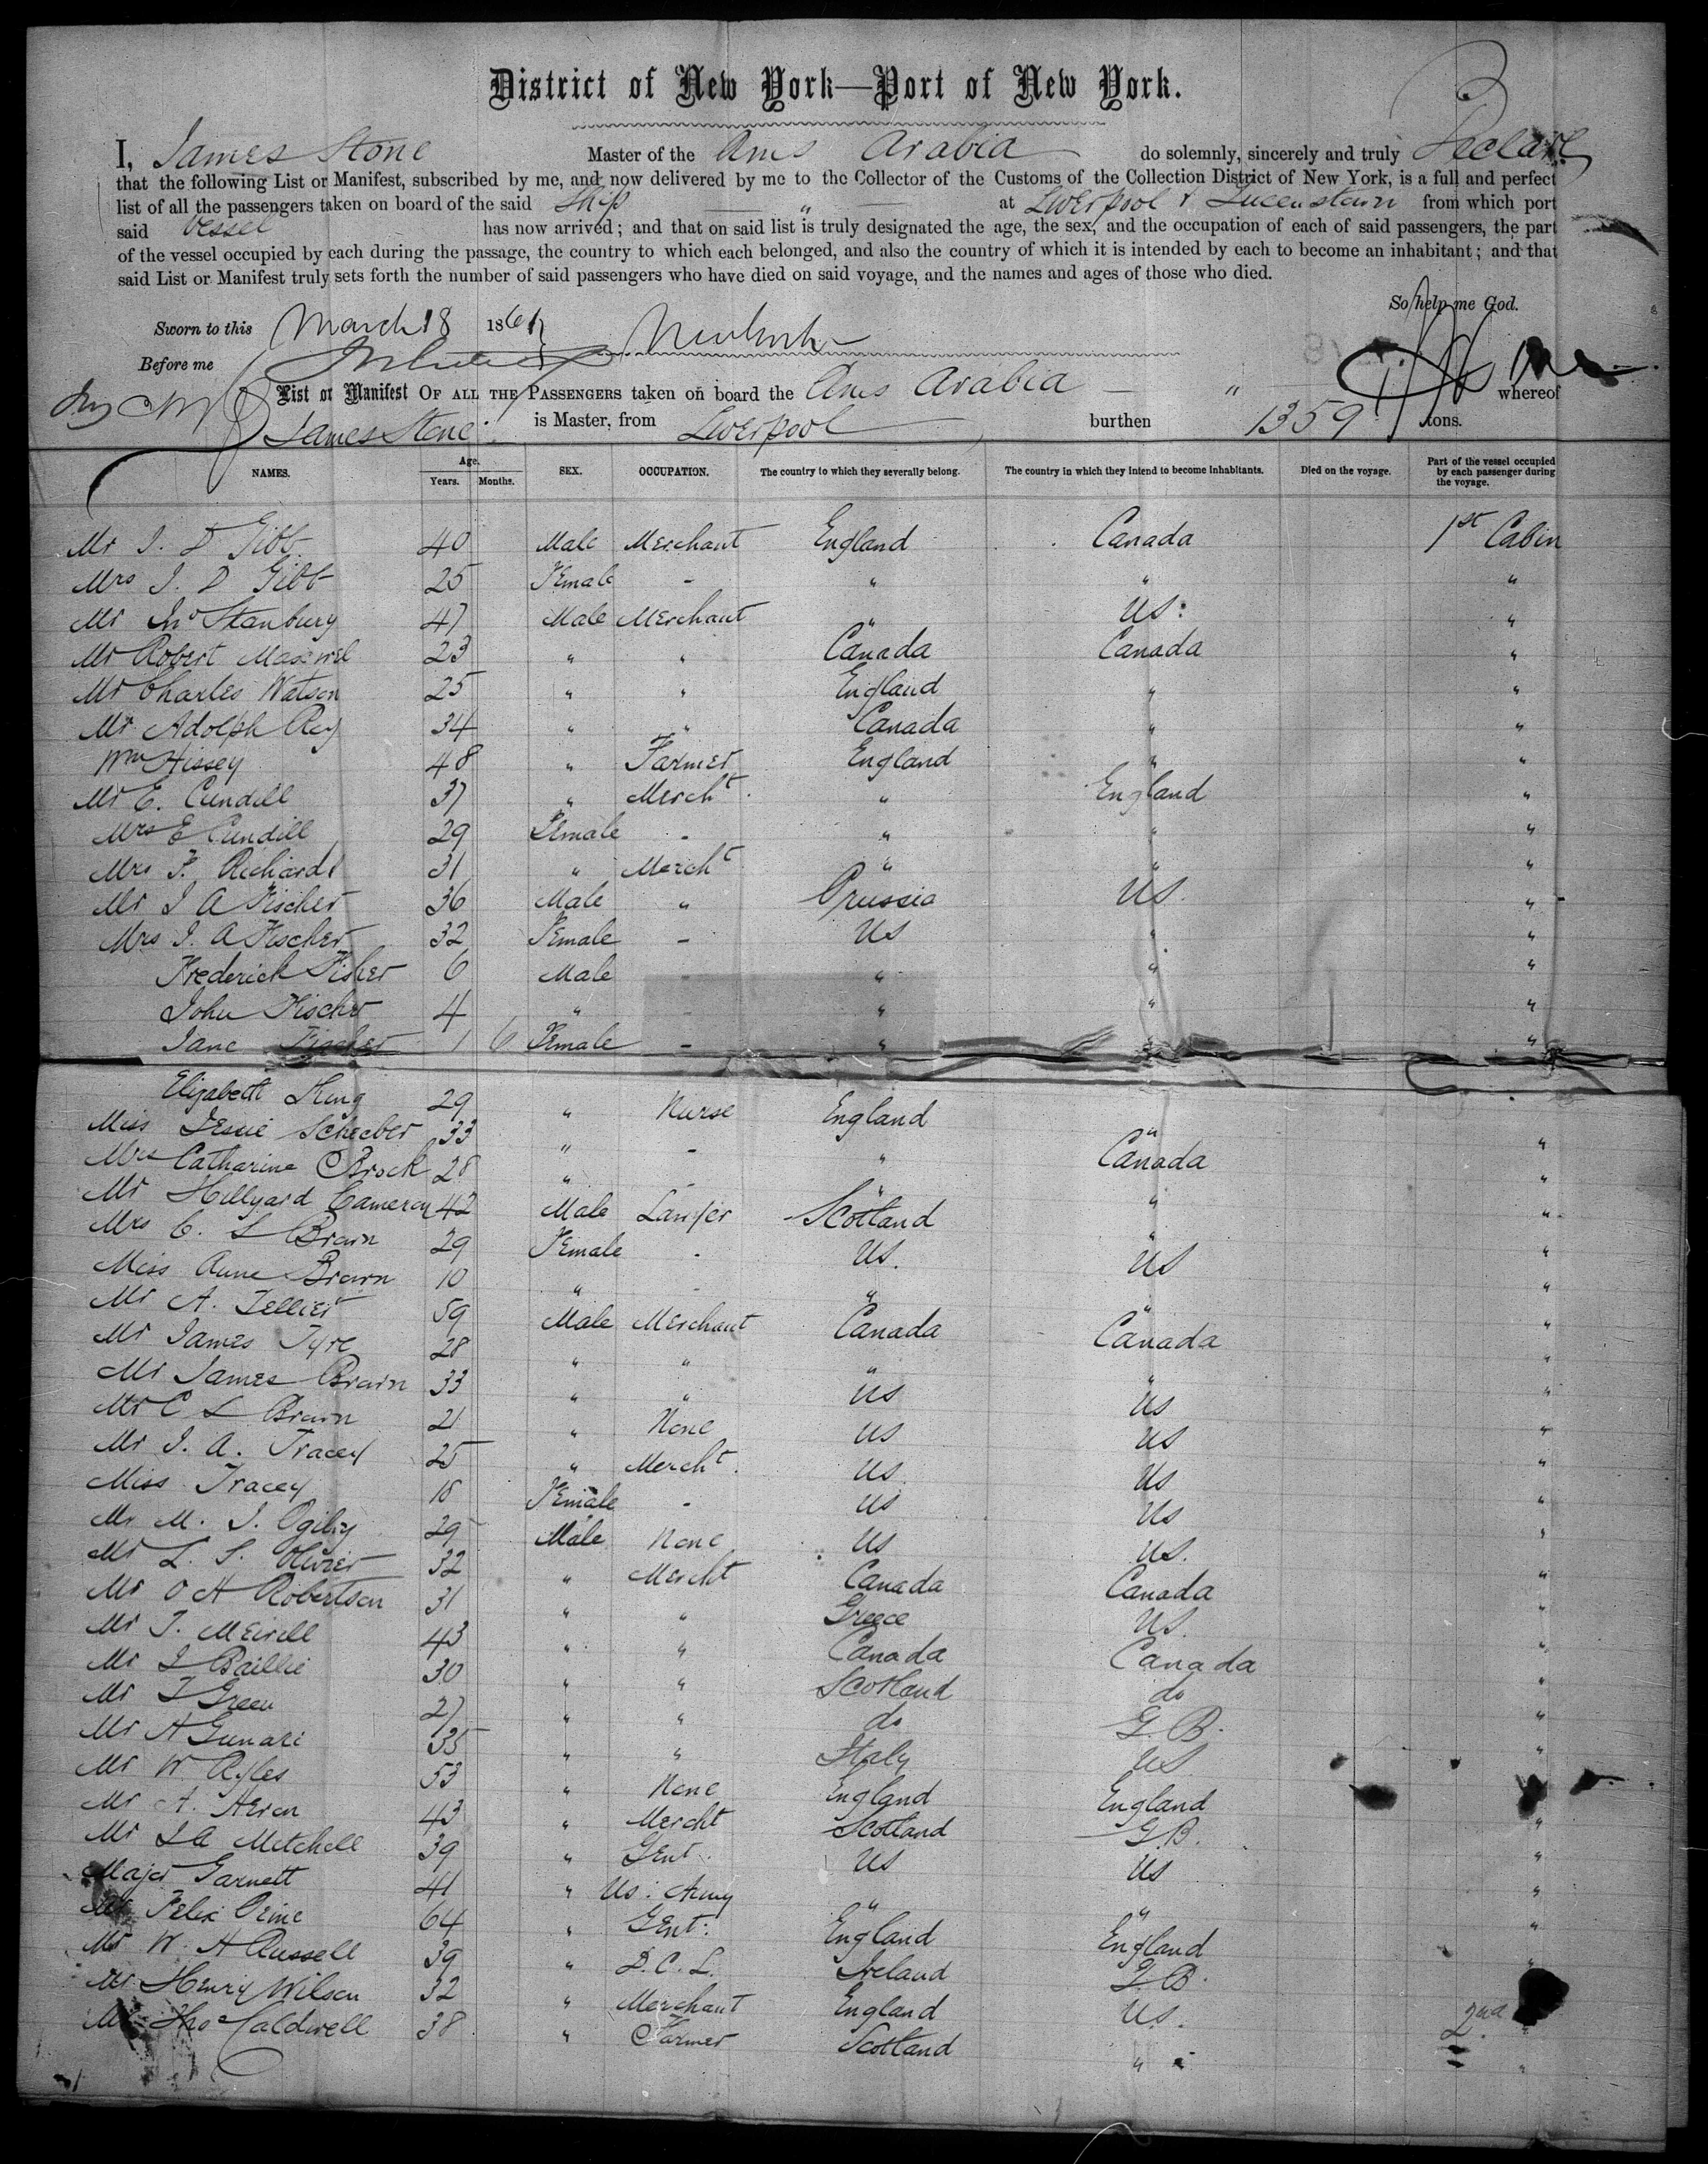 District of New York—Port of New York.
I, James Stone Master of the Ams Arabia do solemnly, sincerely and truly Declare
that the following List or Manifest, subscribed by me, and now delivered by me to the Collector of the Customs of the Collection District of New York, is a full and perfect
list of all the passengers taken on board of the said Ship " at Liverpool & Queenstown from which port
said Vessel has now arrived; and that on said list is truly designated the age, the sex, and the occupation of each of said passengers, the part
of the vessel occupied by each during the passage, the country to which each belonged, and also the country of which it is intended by each to become an inhabitant; and that
said List or Manifest truly sets forth the number of said passengers who have died on said voyage, and the names and ages of those who died.
So help me God.
Sworn to this March 18 1861
Before me
List or Manifest OF ALL THE PASSENGERS taken on board the Ams Arabia " whereof
James Stone is Master, from Liverpool burthen 1359 tons.
NAMES. Age. Years. Months. SEX. OCCUPATION. The country to which they severally belong. The country in which they intend to become inhabitants. Died on the voyage. Part of the vessel occupied by each passenger during the voyage.
Mr J. D Gibb 40 Male Merchant England Canada 1st Cabin
Mrs J. D Gibb 25 Female - " " "
Mr Jno Stanbury 47 Male Merchant " US: "
Mr Robert Maxwel 23 " " Canada Canada "
Mr Charles Watson 25 " " England " "
Mr Adolph Roy 34 " " Canada " "
Wm Hissey 48 " Farmer England " "
Mr E. Cundill 37 " Mercht " England "
Mrs E Cundill 29 Female - " " "
Mrs F. Richards 31 " Mercht " " "
Mr J A Fischer 36 Male " Prussia US. "
Mrs J. A Fischer 32 Female - US " "
Frederick Fisher 6 Male - " " "
John Fischer 4 " - " " "
Jane Fischer 1 6 Female - " " "
Elizabeth King 29 " Nurse England "
Miss Jessie Scheeber 33 " - " Canada "
Mrs Catharine Brock 28 " - " " "
Mr Hillyard Cameron 42 Male Lawyer Scotland " "
Mrs C. S Brown 29 Female - US. US "
Miss Anne Brown 10 " - " " "
Mr A. Tellier 59 Male Merchant Canada Canada "
Mr James Tyre 28 " " " " "
Mr James Brown 33 " " US US "
Mr C S Brown 21 " None US US "
Mr J. A. Tracey 25 " Mercht. US US "
Miss Tracey 18 Female - US US "
Mr M. J. Ogilvy 29 Male None US US. "
Mr L. S. Olivier 32 " Mercht Canada Canada "
Mr O H Robertson 31 " " Greece US. "
Mr J. Meirell 43 " " Canada Canada "
Mr J Baillie 30 " " Scotland do "
Mr J Green 27 " " do G. B. "
Mr A Gunari 35 " " Italy US "
Mr W Ryles 53 " None England England
Mr A. Heron 43 " Mercht Scotland G. B. "
Mr J A Mitchell 39 " Gent. US US "
Major Garnett 41 " US. Army " " "
Mr Felix Prine 64 " Gent: England England "
Mr W. H Russell 39 " D. C. L. Ireland G. B. "
Mr Henry Wilson 32 " Merchant England US. 2nd "
Mr Thos Caldwell 38 " Farmer Scotland " "